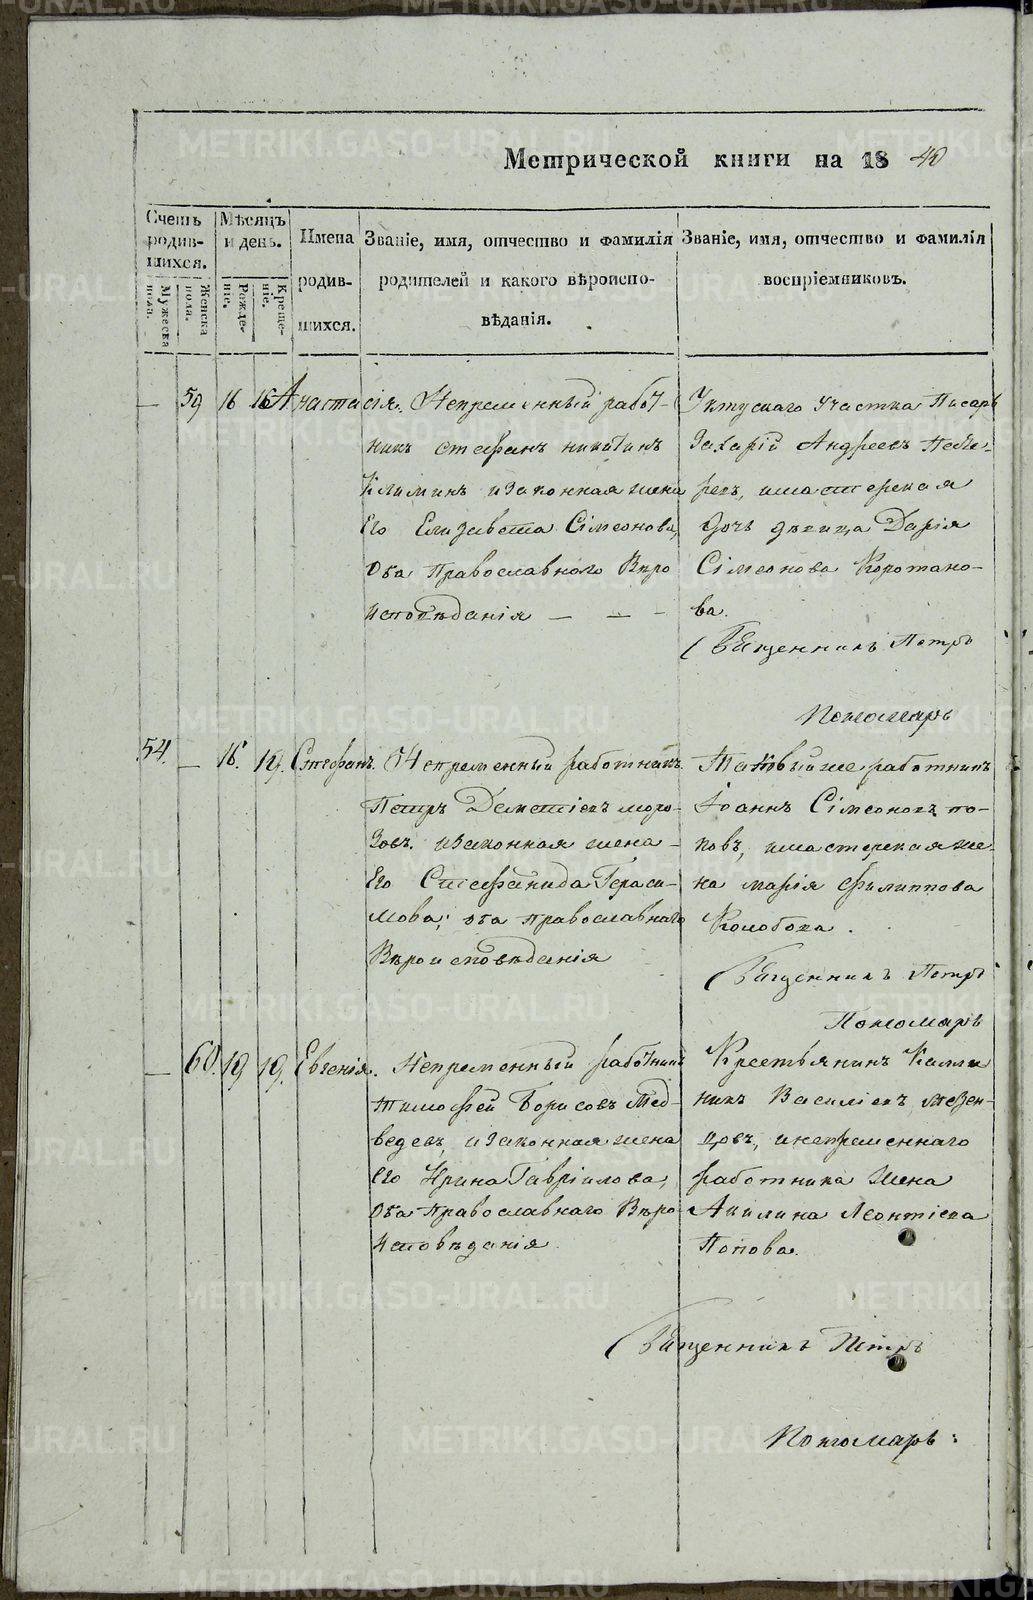 Метрической книги на 18 40
Счетъ родив-шихся.
Мужеска пола.
Женска пола.
Мѣсяцъ и день.
Рожде-ніе.
Креще-ніе.
Имена родив-шихся.
Званіе, имя, отчество и фамилія родителей и какого вѣроиспо-вѣданія.
Званіе, имя, отчество и фамилія воспріемниковъ.
— 59 16 16 Анастасія. Непременный работ-
никъ Стефанъ Никитинъ
Климинъ и законная жена
Его Елизавета Сімеонова,
Оба Православного Веро
исповѣданія — — —
Уктускаго участка Писарь
Захарій Андреевъ
рдъ, и мастерская
дочь девица Дарія
Сімеонова Коротано-
ва.
Священникъ Петръ
Пономарь
54. — 16. 19. Стефанъ. Непременный работникъ
Петръ Дементіевъ Моро-
зовъ. и законная жена —
Его Стефанида Гераси-
мова; оба православнаго
Вѣроисповѣданія
Таковый же работникъ
Іоаннъ Сімеоновъ По-
повъ, и мастерская же-
на Марія Филиппова
Колобова.
Священникъ Петръ
Пономарь
— 60. 19 19. Евгенія. Непременный работникъ
Тимофей Борисовъ Мед-
ведевъ, и законная жена
его Ирина Гавріилова,
Оба Православнаго Веро
Исповѣданія
Крестьянинъ Калли
никъ Василіевъ Мезен-
цовъ, и непременнаго
работника жена
Акилина Леонтіева
Попова.
Священникъ Петръ
Пономарь:
METRIKI.GASO-URAL.RU